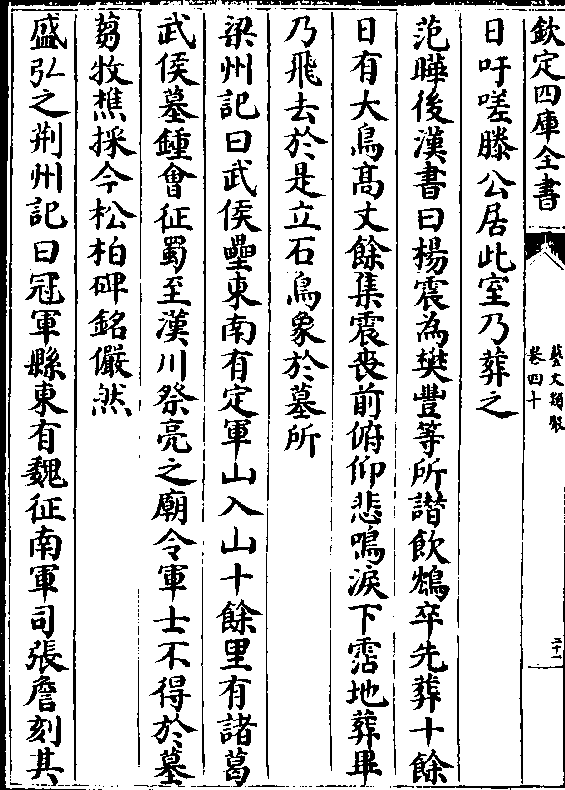 欽定四庫全書
藝文類聚
卷四十
二十一
日吁嗟滕公居此室乃葬之
范曄後漢書曰楊震為樊豐等所譖飲鴆卒先葬十餘
日有大鳥高丈餘集震喪前俯仰悲鳴淚下霑地葬畢
乃飛去於是立石鳥象於墓所
梁州記曰武侯壘東南有定軍山入山十餘里有諸葛
武侯墓鍾會征蜀至漢川祭亮之廟令軍士不得於墓
蒭牧樵採今松柏碑銘儼然
盛弘之荆州記曰冠軍縣東有魏征南軍司張詹刻其